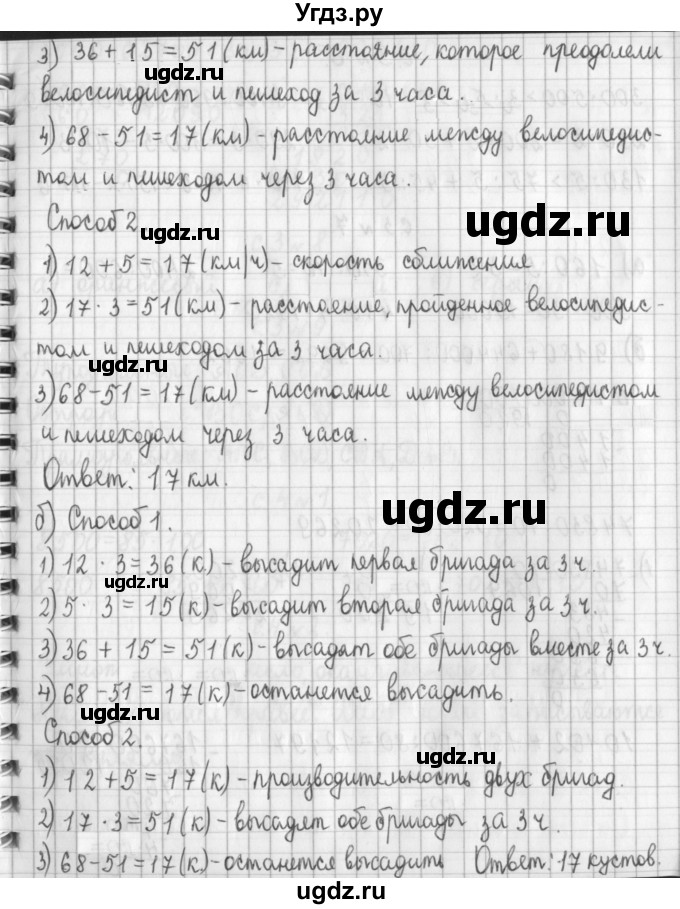 Угдз.ру
3) 36 + 15 = 51 (км) - расстояние, которое преодолели
ugdz.ru
велосипедист и пешеход за 3 часа.
ugdz.ru
4) 68 - 51 = 17 (км) - расстояние между велосипедис-
том и пешеходом через 3 часа.
Способ 2
ugdz.ru
ugdz.ru
1) 12 + 5 = 17 (км/ч) - скорость сближения
2) 17 · 3 = 51 (км) - расстояние, пройденное велосипедис-
том и пешеходом за 3 часа.
ugdz.ru
3) 68 - 51 = 17 (км) - расстояние между велосипедистом
и пешеходом через 3 часа.
Ответ: 17 км.
б) Способ 1.
ugdz.ru
1) 12 · 3 = 36 (к.) - высадит первая бригада за 3 ч.
ugdz.ru
2) 5 · 3 = 15 (к) - высадит вторая бригада за 3 ч.
ugdz.ru
3) 36 + 15 = 51 (к) - высадят обе бригады вместе за 3 ч.
4) 68 - 51 = 17 (к) - останется высадить.
ugdz.ru
Способ 2.
ugdz.ru
1) 12 + 5 = 17 (к) - производительность двух бригад.
2) 17 · 3 = 51 (к) - высадят обе бригады за 3 ч.
ugdz.ru
3) 68 - 51 = 17 (к) - останется высадить Ответ: 17 кустов.
ugdz.ru
ugdz.ru